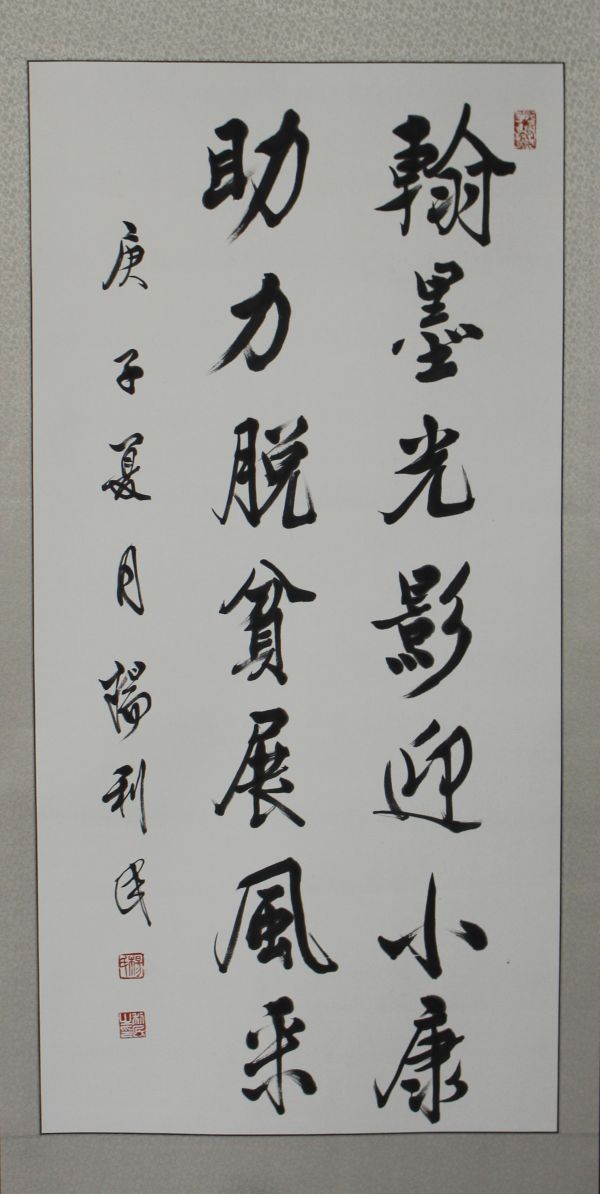 翰墨光影迎小康
助力脱貧展風采
庚子夏月楊利民